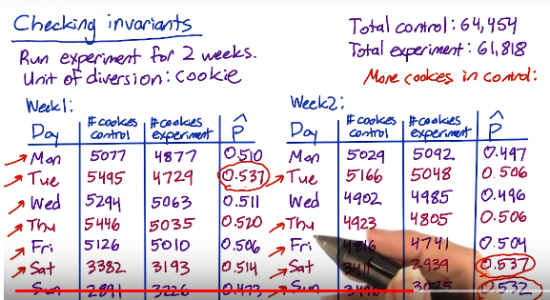 Checking invariants
Run experiment for 2 weeks.
Unit of diversion: cookie
Total control: 64,454
Total experiment: 61,818
More cookies in control:
Week1:
Day #cookies control #cookies experiment p̂
Mon 5077 4877 0.510
Tue 5495 4729 0.537
Wed 5294 5063 0.511
Thu 5446 5035 0.520
Fri 5126 5010 0.506
Sat 3382 3193 0.514
Sun 2891 3226 0.473
Week2:
Day #cookies control #cookies experiment p̂
Mon 5029 5092 0.497
Tue 5166 5048 0.506
Wed 4902 4985 0.496
Thu 4923 4805 0.506
Fri 4741 0.504
Sat 2939 0.537
Sun 0.532